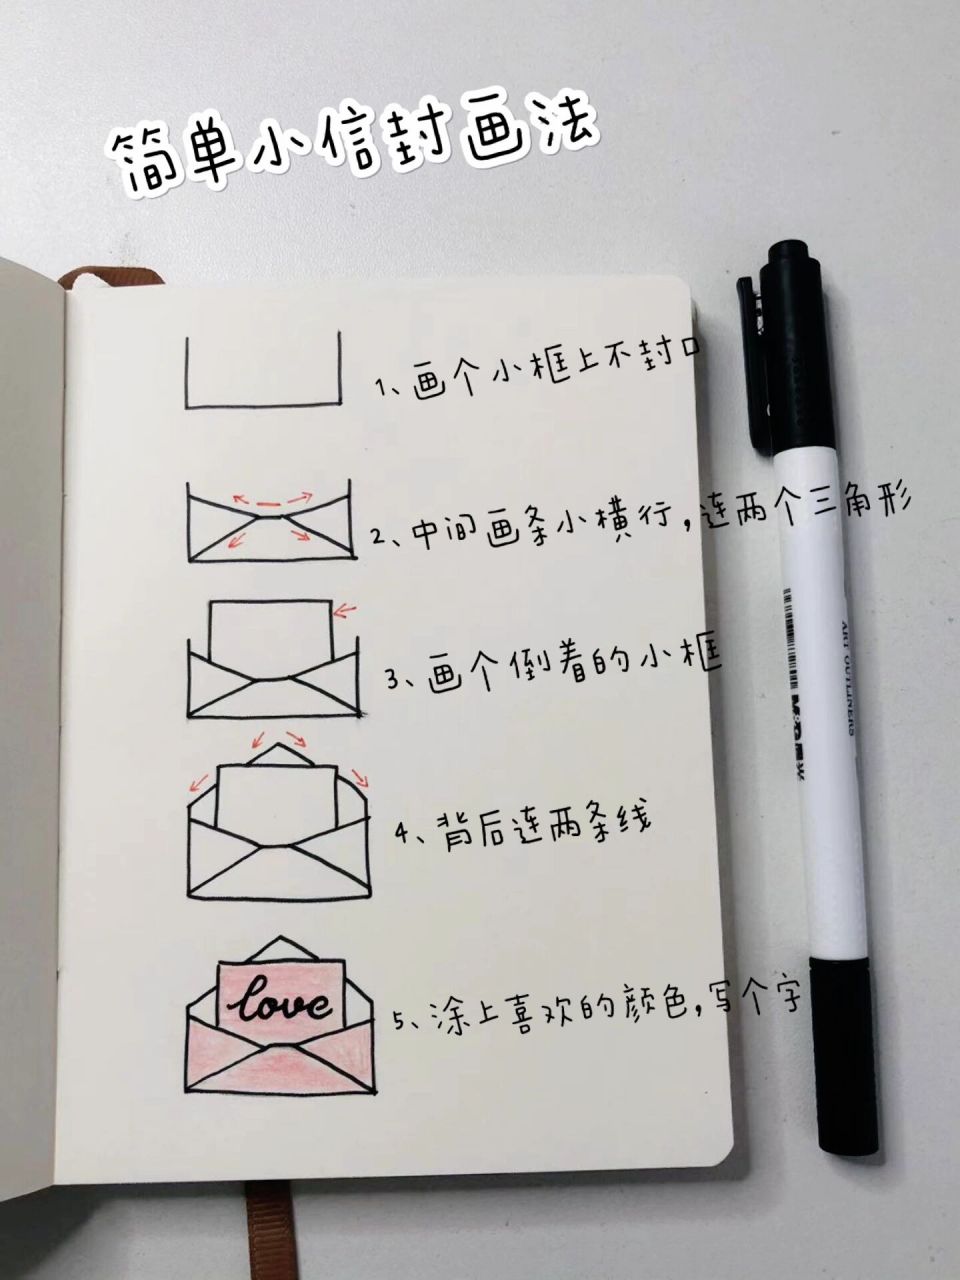 简单小信封画法
1、画个小框上不封口
2、中间画条小横行,连两个三角形
3、画个倒着的小框
4、背后连两条线
love
5、涂上喜欢的颜色,写个字
ART OUTLINERS
M&G 晨光